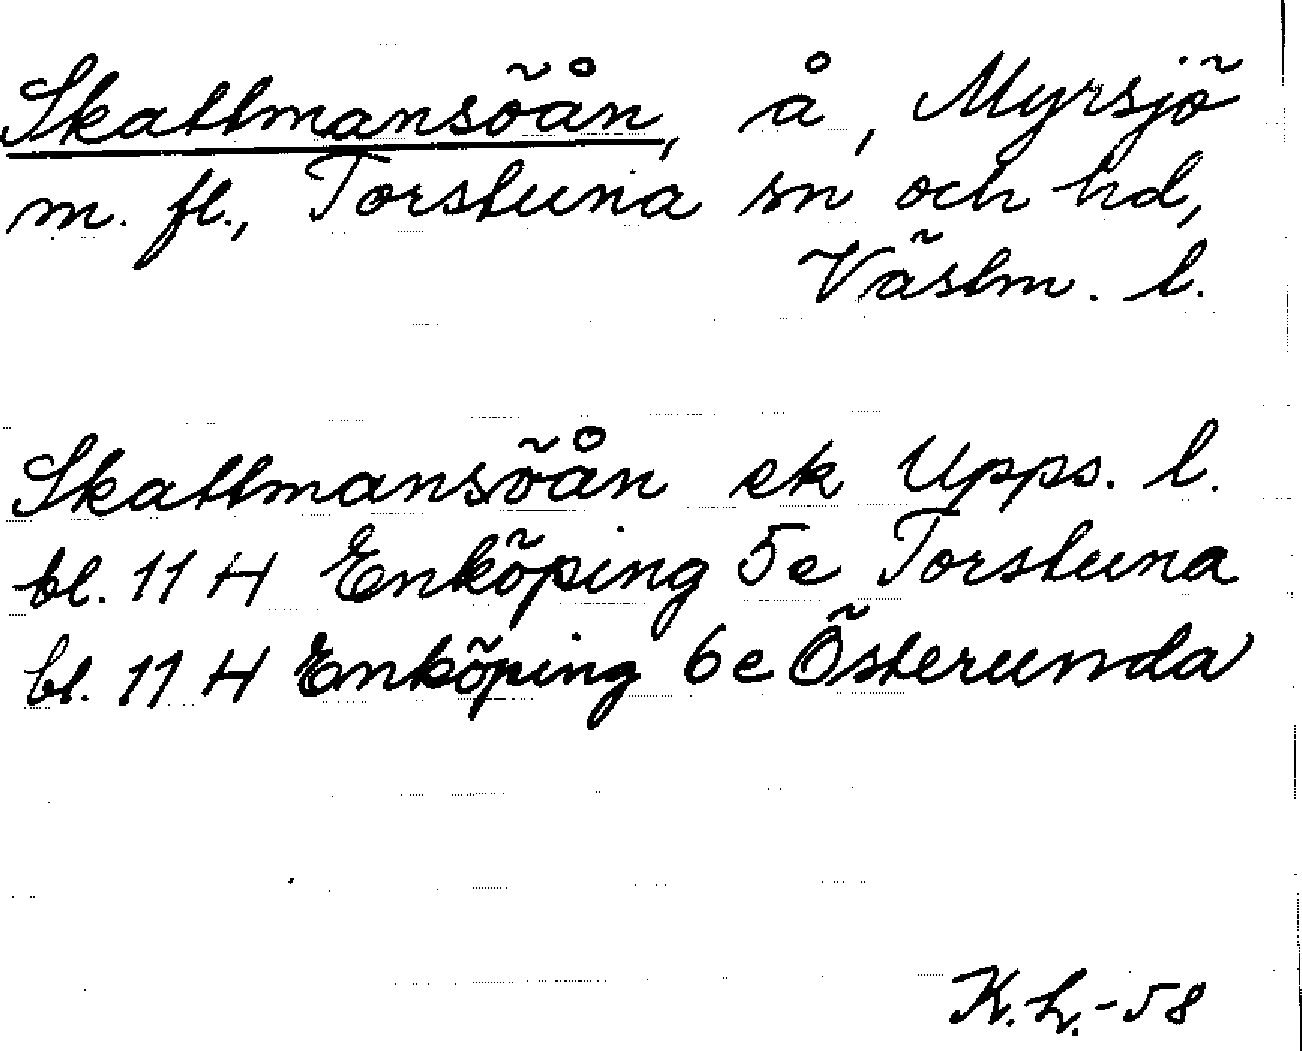 Skattmansöån, å, Myrsjö
m. fl., Torstuna sn och hd,
Västm. l.
Skattmansöån ek Upps. l.
bl. 11 H Enköping 5e Torstuna
bl. 11 H Enköping 6e Österunda
K.h.-58